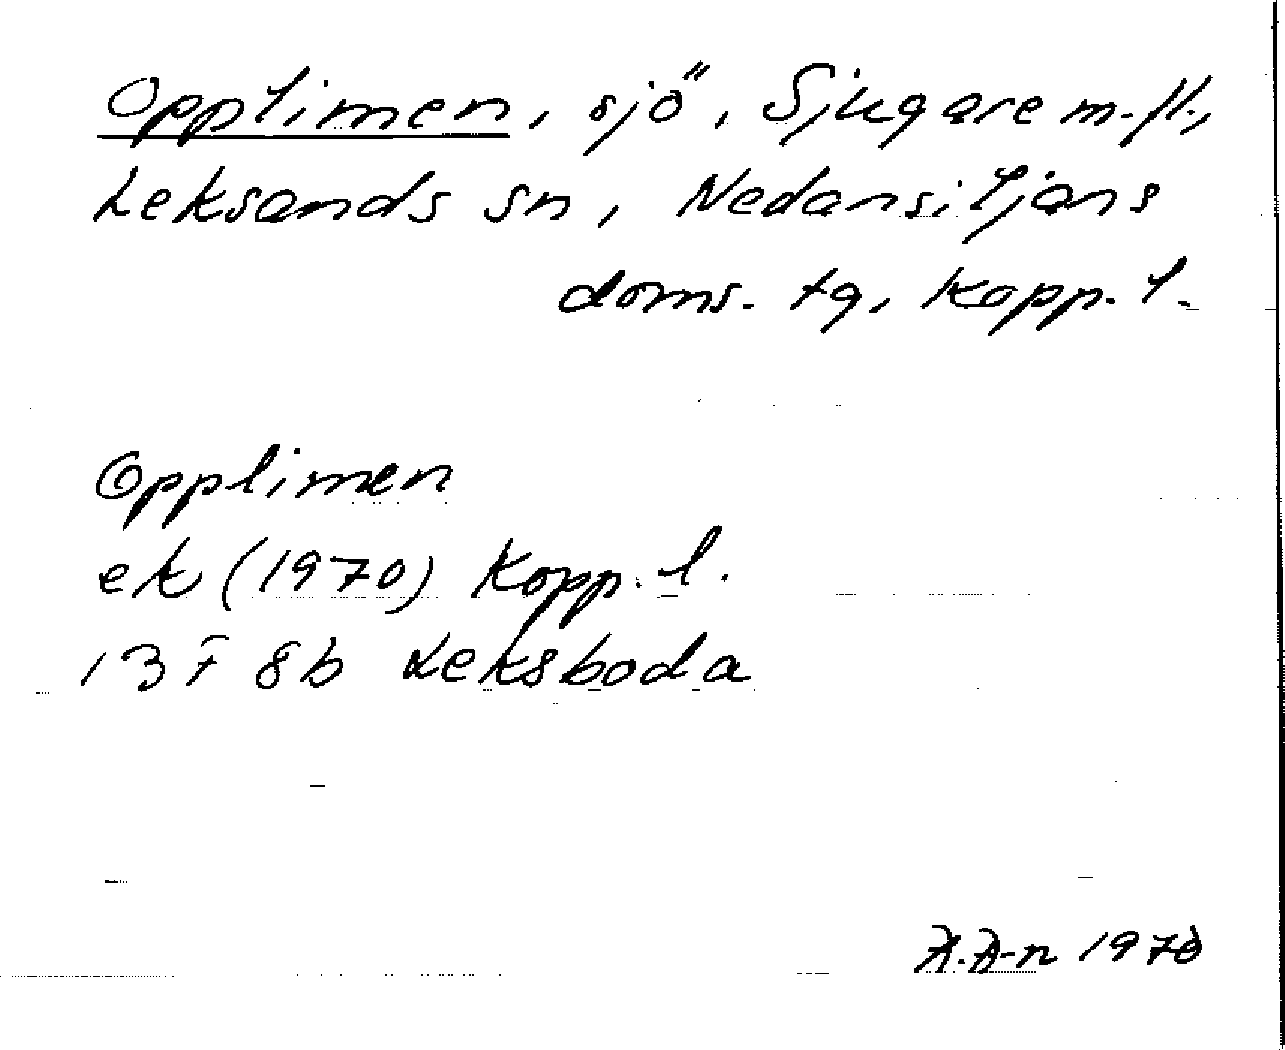 Opplimen, sjö, Sjugare m.fl.,
Leksands sn, Nedansiljans
doms. tg, Kopp. l.
Opplimen
ek (1970) Kopp. l.
13 F 8b Leksboda
1970